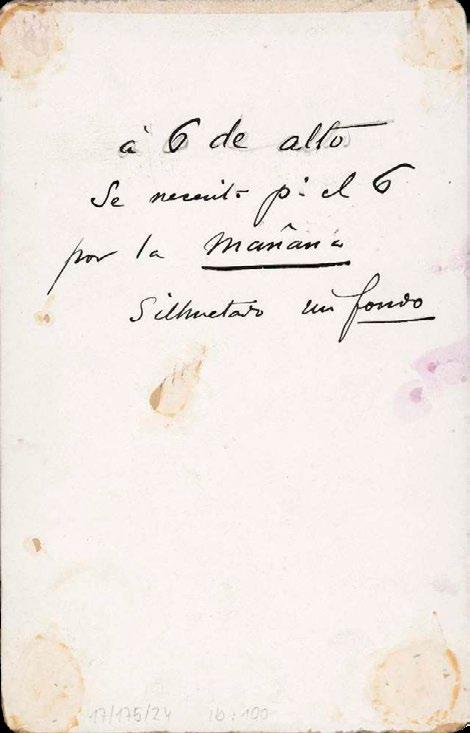 à 6 de alto
Se necesita pª el 6
por la mañana
Silhuetado sin fondo
17/175/24 16:100